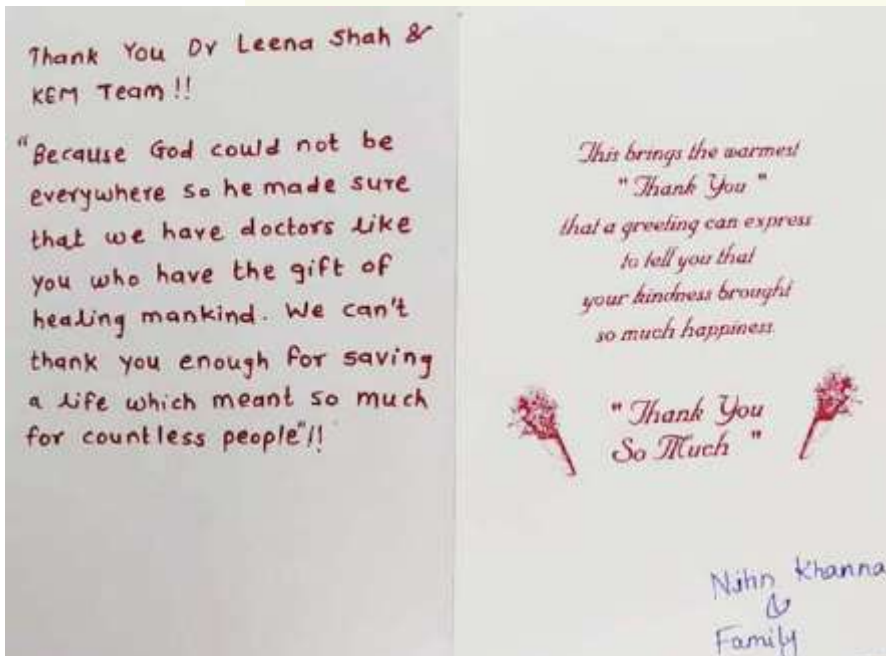 Thank You Dr Leena Shah &
KEM Team !!
"Because God could not be
everywhere so he made sure
that we have doctors like
you who have the gift of
healing mankind. We can't
thank you enough for saving
a life which meant so much
for countless people"!!
This brings the warmest
"Thank You"
that a greeting can express
to tell you that
your kindness brought
so much happiness.
"Thank You
So Much"
Nitin Khanna
&
Family